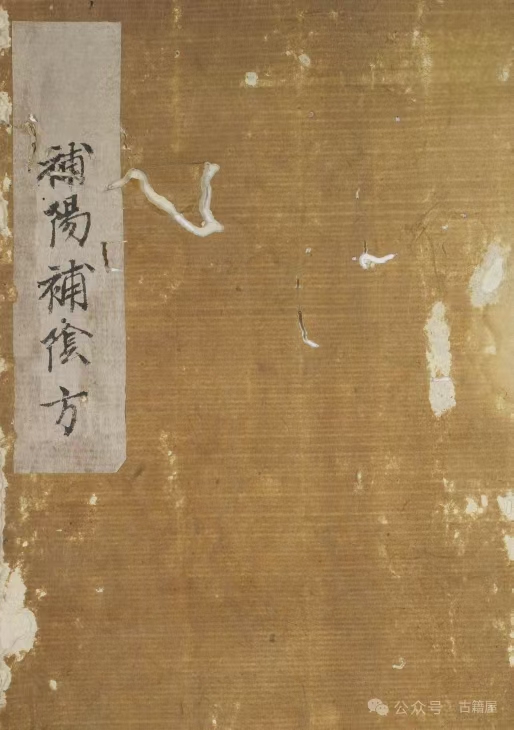 補陽補陰方
公众号 · 古籍屋